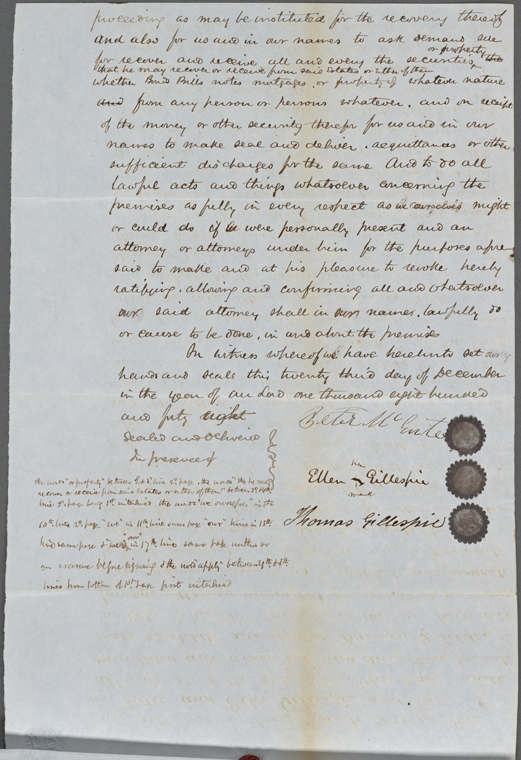 proceeding as may be instituted for the recovery thereof
and also for us and in our names to ask demand sue
or property
for recover and receive all and every the securities
that he may recover or receive from said Estates or either of them
whether Bond Bills notes mortgages or property of whatever nature
and from any person or persons whatever, and on receipt
of the money or other security therefor for us and in our
names to make seal and deliver, acquittances or other
sufficient discharges for the same And to do all
lawful acts and things whatsoever concerning the
premises as fully in every respect as we ourselves might
or could do if we were personally present and an
attorney or attorneys under him for the purposes afore
said to make and at his pleasure to revoke hereby
ratifying, allowing and confirming all and whatsoever
our said attorney shall in our names, lawfully do
or cause to be done, in and about the premises
In witness whereof we have hereunto set our
hands and seals this twenty third day of December
in the year of our Lord one thousand eight hundred
and forty eight
Sealed and Delivered
In presence of
Peter Mc
her
Ellen Gillespie
mark
Thomas Gillespie
the words "or property" between 2 & 3 line 2d page, the words "that he may
recover or receive from said Estates or either of them" between 3d & 4th
line 2d page being 1st interlined, the words "we ourselves" in the
10th line 2d page "we" in 11th line same page "our" line in 15th
line same page & word "our" in 17th line same page written on
an erasure before signing & the word apply between 4th & 5th
lines from bottom of 1st page first interlined